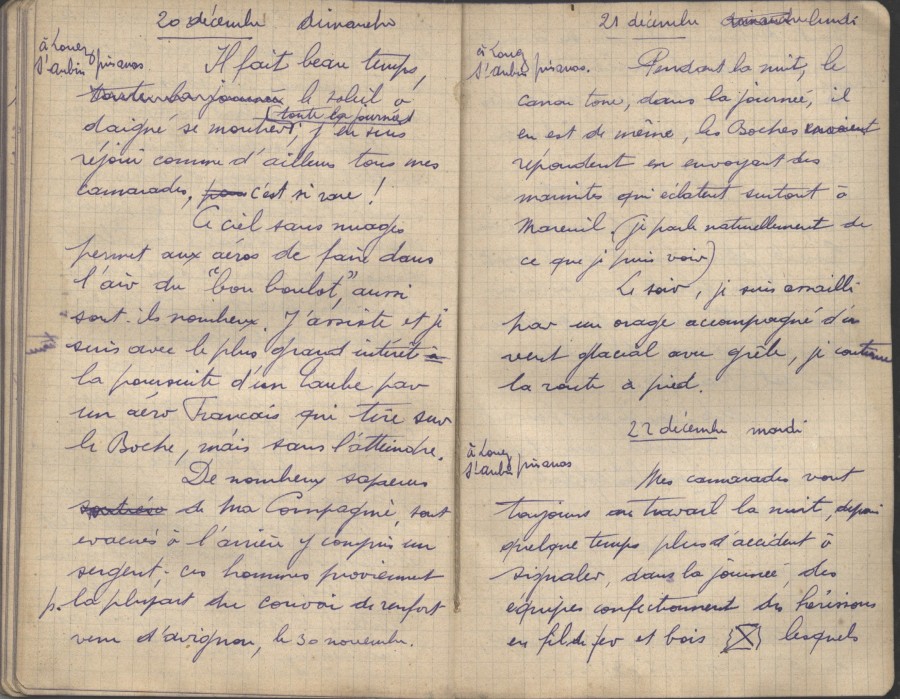 20 décembre dimanche
à Louez
St aubin pis anos
Il fait beau temps,
toute la journée, le soleil a
(toute la journée)
daigné se montrer, j'en suis
réjoui comme d'ailleurs tous mes
camarades, c'est si rare !
Ce ciel sans nuages
permet aux aéros de faire dans
l'air du "bon boulot", aussi
sont-ils nombreux. J'assiste et je
suis avec le plus grand intérêt à
la poursuite d'un Taube par
un aéro Français qui tire sur
le Boche, mais sans l'atteindre.
De nombreux sapeurs
de ma Compagnie, sont
évacués à l'arrière y compris un
sergent; ces hommes proviennent
p. la plupart du convoi de renfort
venu d'avignon, le 30 novembre.
21 décembre dimanche lundi
à Louez
St aubin pis anos.
Pendant la nuit, le
canon tone, dans la journée, il
en est de même, les Boches envoient
répondent en envoyant des
marmites qui éclatent surtout à
Mareuil. (je parle naturellement de
ce que je puis voir)
Le soir, je suis assailli
par un orage accompagné d'un
vent glacial avec grêle, je continue
la route à pied.
22 décembre mardi
à Louez
St aubin pis anos
Mes camarades vont
toujours au travail la nuit, depuis
quelque temps plus d'accident à
signaler, dans la journée, des
équipes confectionnent des hérissons
en fil de fer et bois lesquels